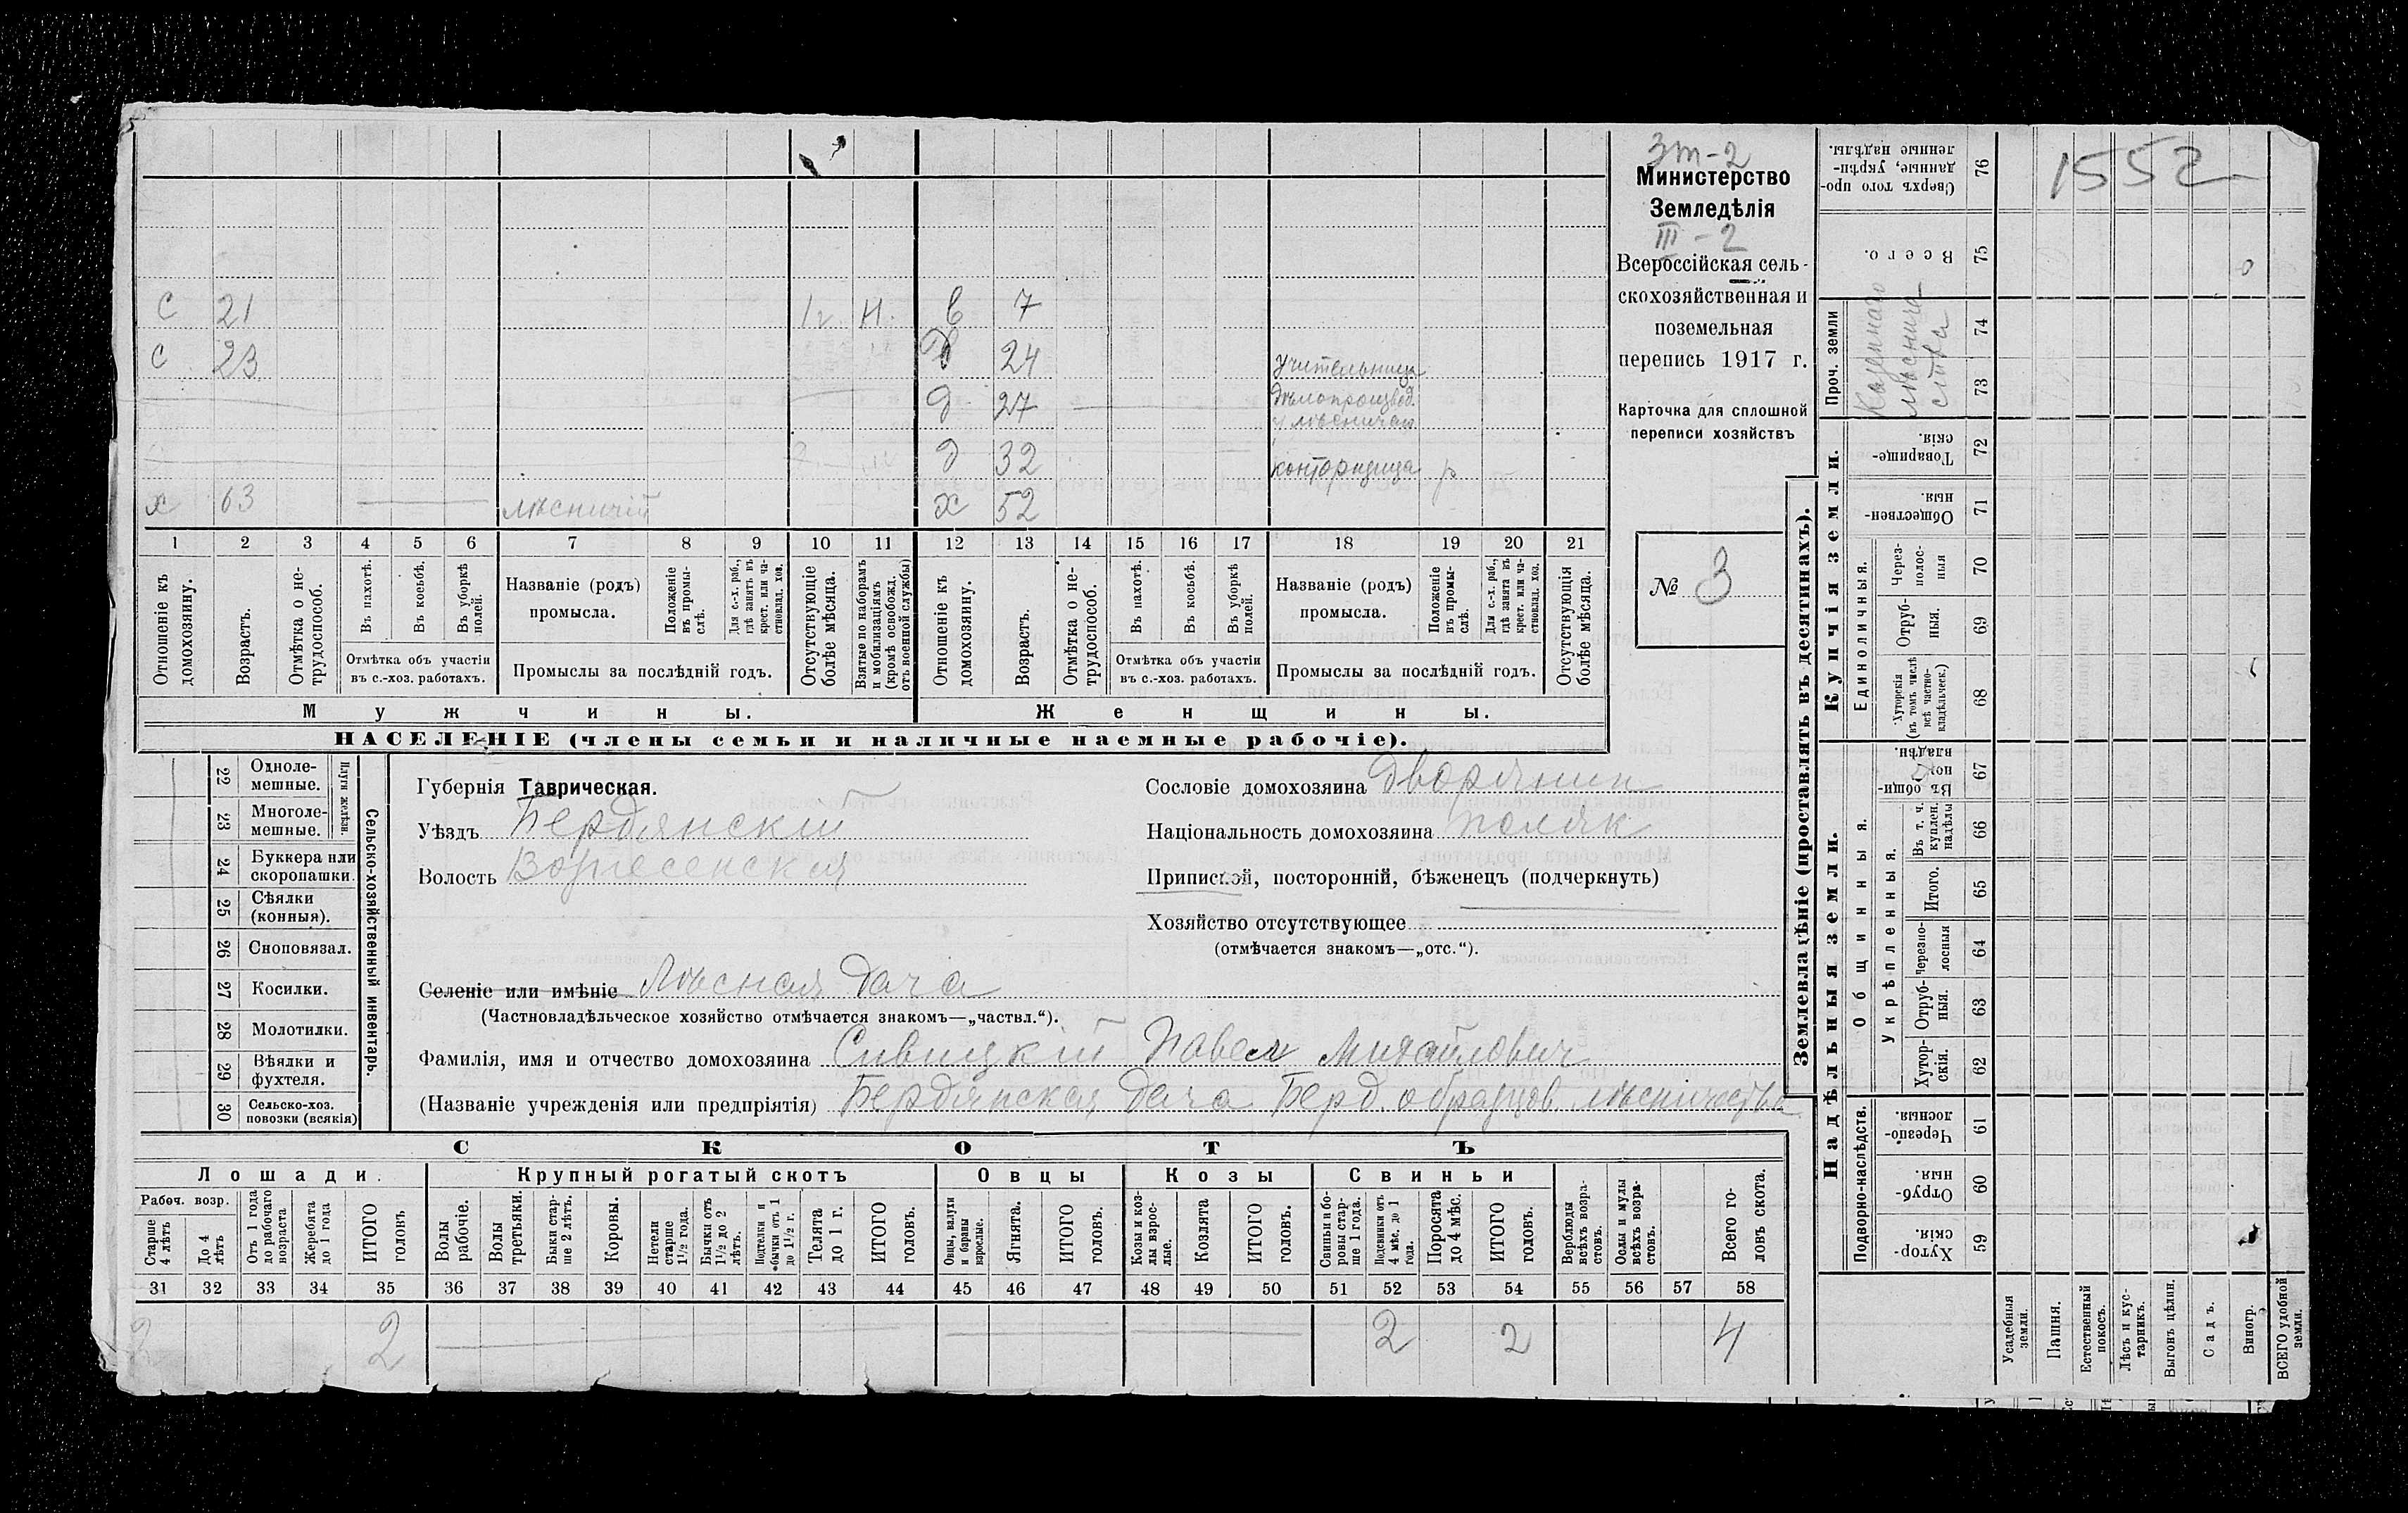 1552
Зт-2
Министерство
Земледѣлія
III-2
Всероссійская сель-
скохозяйственная и
поземельная
перепись 1917 г.
Карточка для сплошной
переписи хозяйствъ
№ 3
с 21 1г н. в 7
с 23 д 24 учительница
д 27 дѣлопроизвод.
у лѣсничаго
д 32 конторщица р
х 63 лѣсничій х 52
1 2 3 4 5 6 7 8 9 10 11 12 13 14 15 16 17 18 19 20 21
Отношеніе къ домохозяину.
Возрастъ.
Отмѣтка о не-трудоспособ.
Въ пахотѣ.
Въ косьбѣ.
Въ уборкѣ полей.
Отмѣтка объ участіи
въ с.-хоз. работахъ.
Названіе (родъ)
промысла.
Положеніе въ промы-слѣ.
Для с.-х. раб., гдѣ занятъ въ крест. или ча-стновлад. хоз.
Промыслы за послѣдній годъ.
Отсутствующіе болѣе мѣсяца.
Взятые по наборамъ и мобилизаціямъ (кромѣ освобожд. отъ военной службы)
Отношеніе къ домохозяину.
Возрастъ.
Отмѣтка о не-трудоспособ.
Въ пахотѣ.
Въ косьбѣ.
Въ уборкѣ полей.
Отмѣтка объ участіи
въ с.-хоз. работахъ.
Названіе (родъ)
промысла.
Положеніе въ промы-слѣ.
Для с.-х. раб., гдѣ занята въ крест. или ча-стновлад. хоз.
Промыслы за послѣдній годъ.
Отсутствующія болѣе мѣсяца.
Мужчины.
Женщины.
НАСЕЛЕНІЕ (члены семьи и наличные наемные рабочіе).
22 Одноле-мешные.
23 Многоле-мешные.
Плуги желѣзн.
24 Буккера или скоропашки.
25 Сѣялки (конныя).
26 Сноповязал.
27 Косилки.
28 Молотилки.
29 Вѣялки и фухтеля.
30 Сельско-хоз. повозки (всякія)
Сельско-хозяйственный инвентарь.
Губернія Таврическая.
Уѣздъ Бердянскій
Волость Вознесенская
Селеніе или имѣніе Лѣсная дача
(Частновладѣльческое хозяйство отмѣчается знакомъ—„частвл.“).
Фамилія, имя и отчество домохозяина Сивицкій Павелъ Михайловичъ
(Названіе учрежденія или предпріятія) Бердянская дача Берд. образцов. лѣсничества
Сословіе домохозяина дворянин
Національность домохозяина поляк
Приписной, посторонній, бѣженецъ (подчеркнуть)
Хозяйство отсутствующее
(отмѣчается знакомъ—„отс.“).
СКОТЪ
Лошади.
Крупный рогатый скотъ
Овцы
Козы
Свиньи
Рабоч. возр.
Старше 4 лѣтъ
До 4 лѣтъ
Отъ 1 года до рабочаго возраста
Жеребята до 1 года
ИТОГО головъ
Волы рабочіе.
Волы третьяки.
Быки стар-ше 2 лѣтъ.
Коровы.
Нетели старше 1½ года.
Бычки отъ 1½ до 2 лѣтъ.
Подтелки и бычки отъ 1 до 1½ г.
Телята до 1 г.
ИТОГО головъ.
Овцы, валухи и бараны взрослые.
Ягнята.
ИТОГО головъ.
Козы и коз-лы взрос-лые.
Козлята
ИТОГО головъ.
Свиньи и бо-ровы стар-ше 1 года.
Подсвинки отъ 4 мѣс. до 1 года.
Поросята до 4 мѣс.
ИТОГО головъ.
Верблюды всѣхъ возра-стовъ.
Ослы и мулы всѣхъ возра-стовъ.
Всего го-ловъ скота.
31 32 33 34 35 36 37 38 39 40 41 42 43 44 45 46 47 48 49 50 51 52 53 54 55 56 57 58
2 2 2 2 4
Землевладѣніе (проставлять въ десятинахъ).
Надѣльныя земли.
Купчія земли.
Проч. земли
Казеннаго
лѣснича
ства
Подворно-наслѣдств.
Общинныя.
Укрѣпленныя.
Единоличныя.
Сверхъ того про-данные, укрѣп-ленные надѣлы. 76
Всего. 75
74
73
Товарище-скія. 72
Обществен-ныя. 71
Через-полос-ныя 70
Отруб-ныя. 69
Хуторскія (въ томъ числѣ всѣ частно-владѣльческ.) 68
Въ общин. польз. владѣн. 67
Въ т. ч. куплен. надѣлы 66
Итого. 65
Черезпо-лосныя 64
Отруб-ныя. 63
Хутор-скія. 62
Черезпо-лосныя. 61
Отруб-ныя. 60
Хутор-скія. 59
Усадебныя земли.
Пашня.
Естественный покосъ.
Лѣсъ и кус-тарникъ.
Выгонъ цѣлин.
Садъ.
Виногр.
ВСЕГО удобной земли.